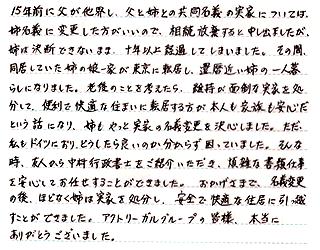 15年前に父が他界し、父と姉との共同名義の実家については、
姉名義に変更した方がいいので、相続放棄すると申し出ましたが、
姉は決断できないまま、十年以上経過してしまいました。その間、
同居していた姉の娘一家が東京に転居し、還暦近い姉の一人暮
らしになりました。老後のことを考えたら、維持が面倒な実家を処
分して、便利で快適な住まいに転居する方が本人も家族も安心だ
という話になり、姉もやっと実家の名義変更を決心しました。ただ、
私もドイツにおり、どうしたら良いのか分からず困っていました。そんな
時、友人から中村行政書士をご紹介いただき、煩雑な書類仕事
を安心してお任せすることができました。おかげさまで、名義変更
の後、ほどなく姉は実家を処分し、安全で快適な住居に引っ越
すことができました。アクトリーガルグループの皆様、本当に
ありがとうございました。